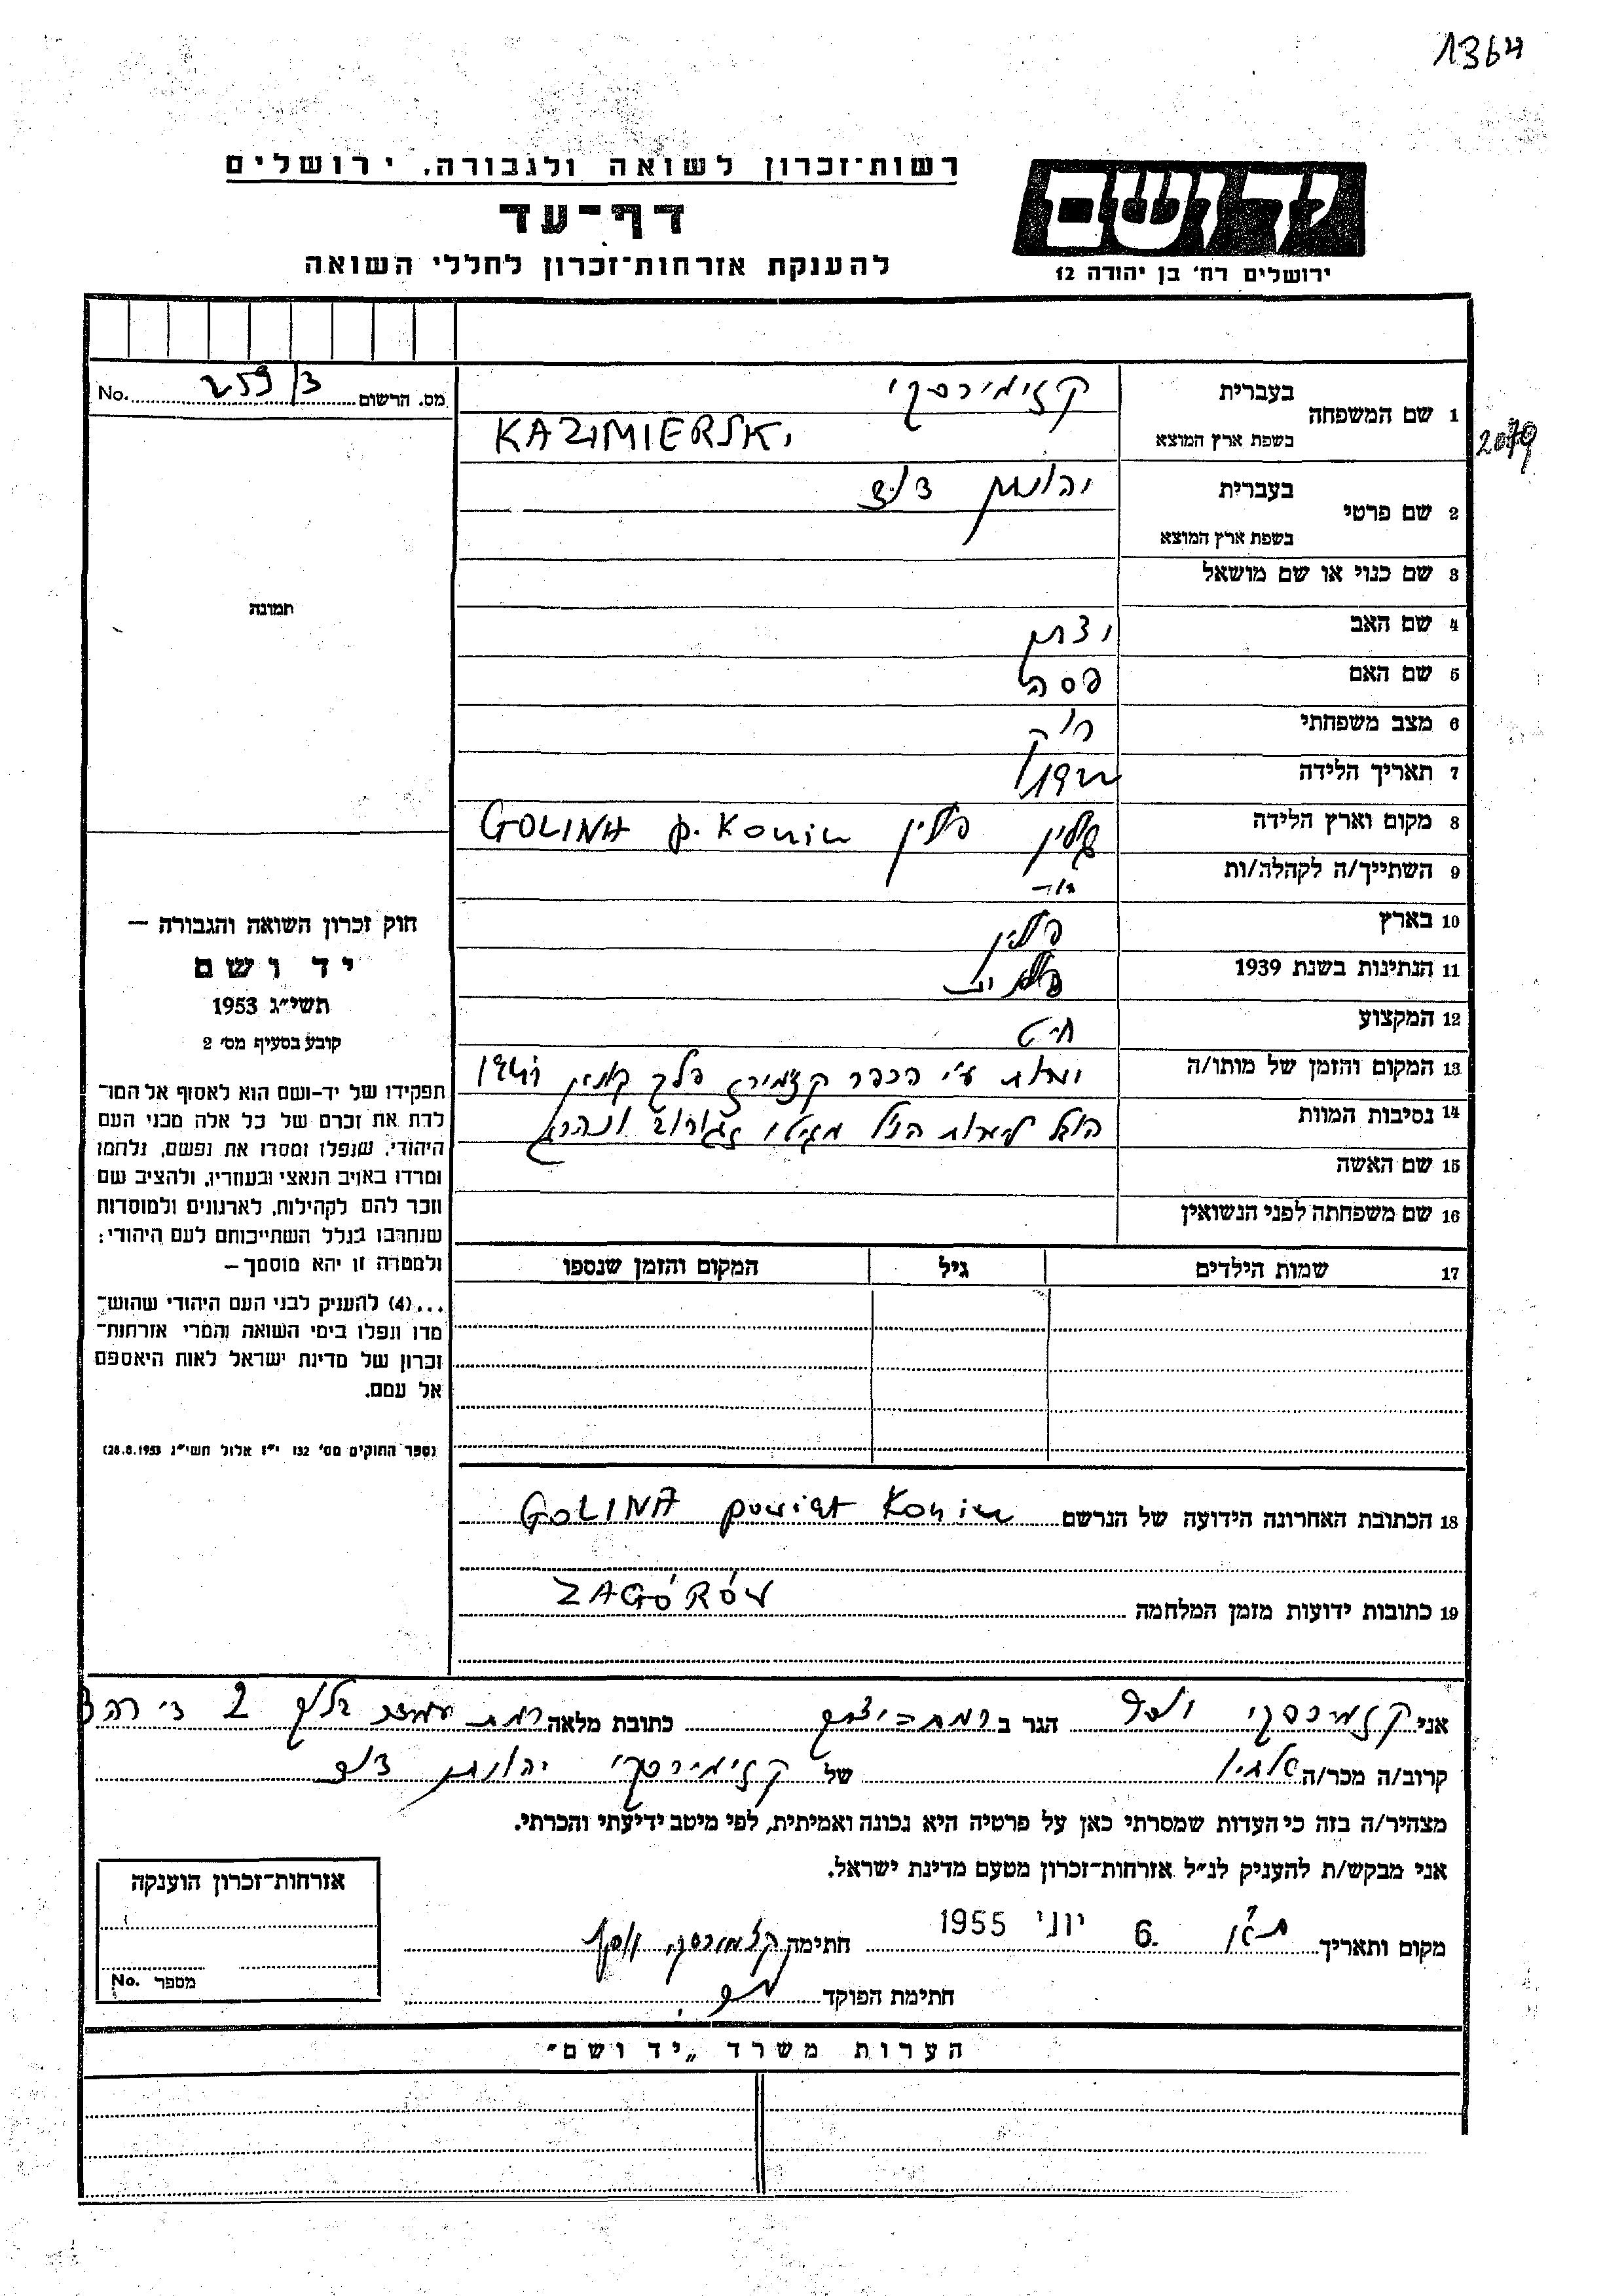 1364
רשות־זכרון לשואה ולגבורה, ירושלים
דף־עד
להענקת אזרחות־זכרון לחללי השואה
יד ושם
ירושלים רח' בן יהודה 12
מס. הרשום 259/3 No.
1 שם המשפחה בעברית קזימירסקי
בשפת ארץ המוצא KAZIMIERSKI
2079
2 שם פרטי בעברית יהונתן דוד
בשפת ארץ המוצא
3 שם כנוי או שם מושאל
תמונה
4 שם האב יצחק
5 שם האם פסה
6 מצב משפחתי רוק
7 תאריך הלידה 1922
8 מקום וארץ הלידה גולין פולין GOLINA p. Konin
9 השתייך/ה לקהלה/ות
10 בארץ פולין
11 הנתינות בשנת 1939 פולנית
12 המקצוע חיט
13 המקום והזמן של מותו/ה יערות ע"י הכפר קזימירז פלך קונין 1941
14 נסיבות המוות הובל ליערות הנ"ל מגיטו זגורוב ונהרג
15 שם האשה
16 שם משפחתה לפני הנשואין
17 שמות הילדים גיל המקום והזמן שנספו
חוק זכרון השואה והגבורה —
יד ושם
תשי"ג 1953
קובע בסעיף מס' 2
תפקידו של יד־ושם הוא לאסוף אל המו־
לדת את זכרם של כל אלה מבני העם
היהודי, שנפלו ומסרו את נפשם, נלחמו
ומרדו באויב הנאצי ובעוזריו, ולהציב שם
וזכר להם לקהילות, לארגונים ולמוסדות
שנחרבו בגלל השתייכותם לעם היהודי;
ולמטרה זו יהא מוסמך —
...(4) להעניק לבני העם היהודי שהוש־
מדו ונפלו בימי השואה והמרי אזרחות־
זכרון של מדינת ישראל לאות היאספם
אל עמם.
(ספר החוקים מס' 132 י"ז אלול תשי"ג 28.8.1953)
18 הכתובת האחרונה הידועה של הנרשם GOLINA powiat Konin
19 כתובות ידועות מזמן המלחמה ZAGÓRÓW
אני קזימירסקי יוסף הגר ב רמת־יצחק כתובת מלאה רמת עמידר 2
קרוב/ה מכר/ה אחיו של קזימירסקי יהונתן דוד
מצהיר/ה בזה כי העדות שמסרתי כאן על פרטיה היא נכונה ואמיתית, לפי מיטב ידיעתי והכרתי.
אני מבקש/ת להעניק לנ"ל אזרחות־זכרון מטעם מדינת ישראל.
מקום ותאריך ת"א 6. יוני 1955 חתימה קזימירסקי יוסף
חתימת הפוקד
אזרחות־זכרון הוענקה
מספר No.
הערות משרד "יד ושם"